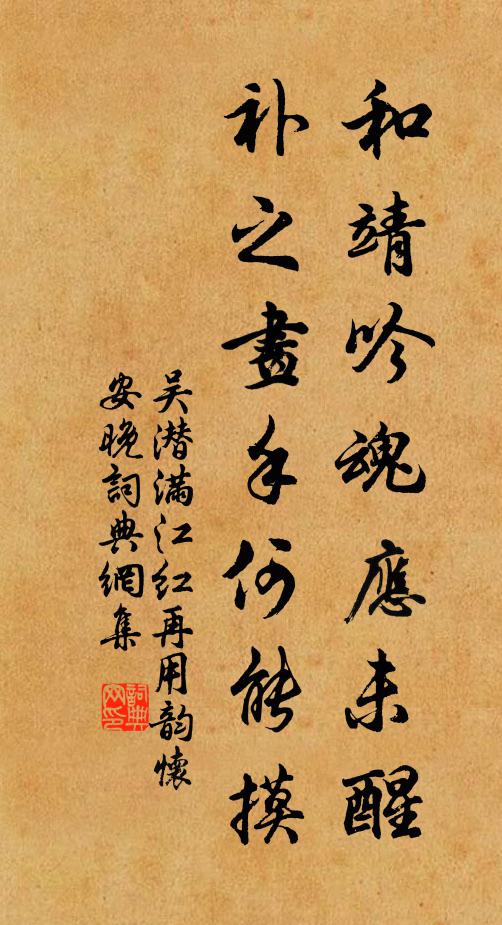 和靖吟魂應未醒
补之畫手何能摸
吴潜满江红再用韵懷
安晚詞典網集
詞典
网印